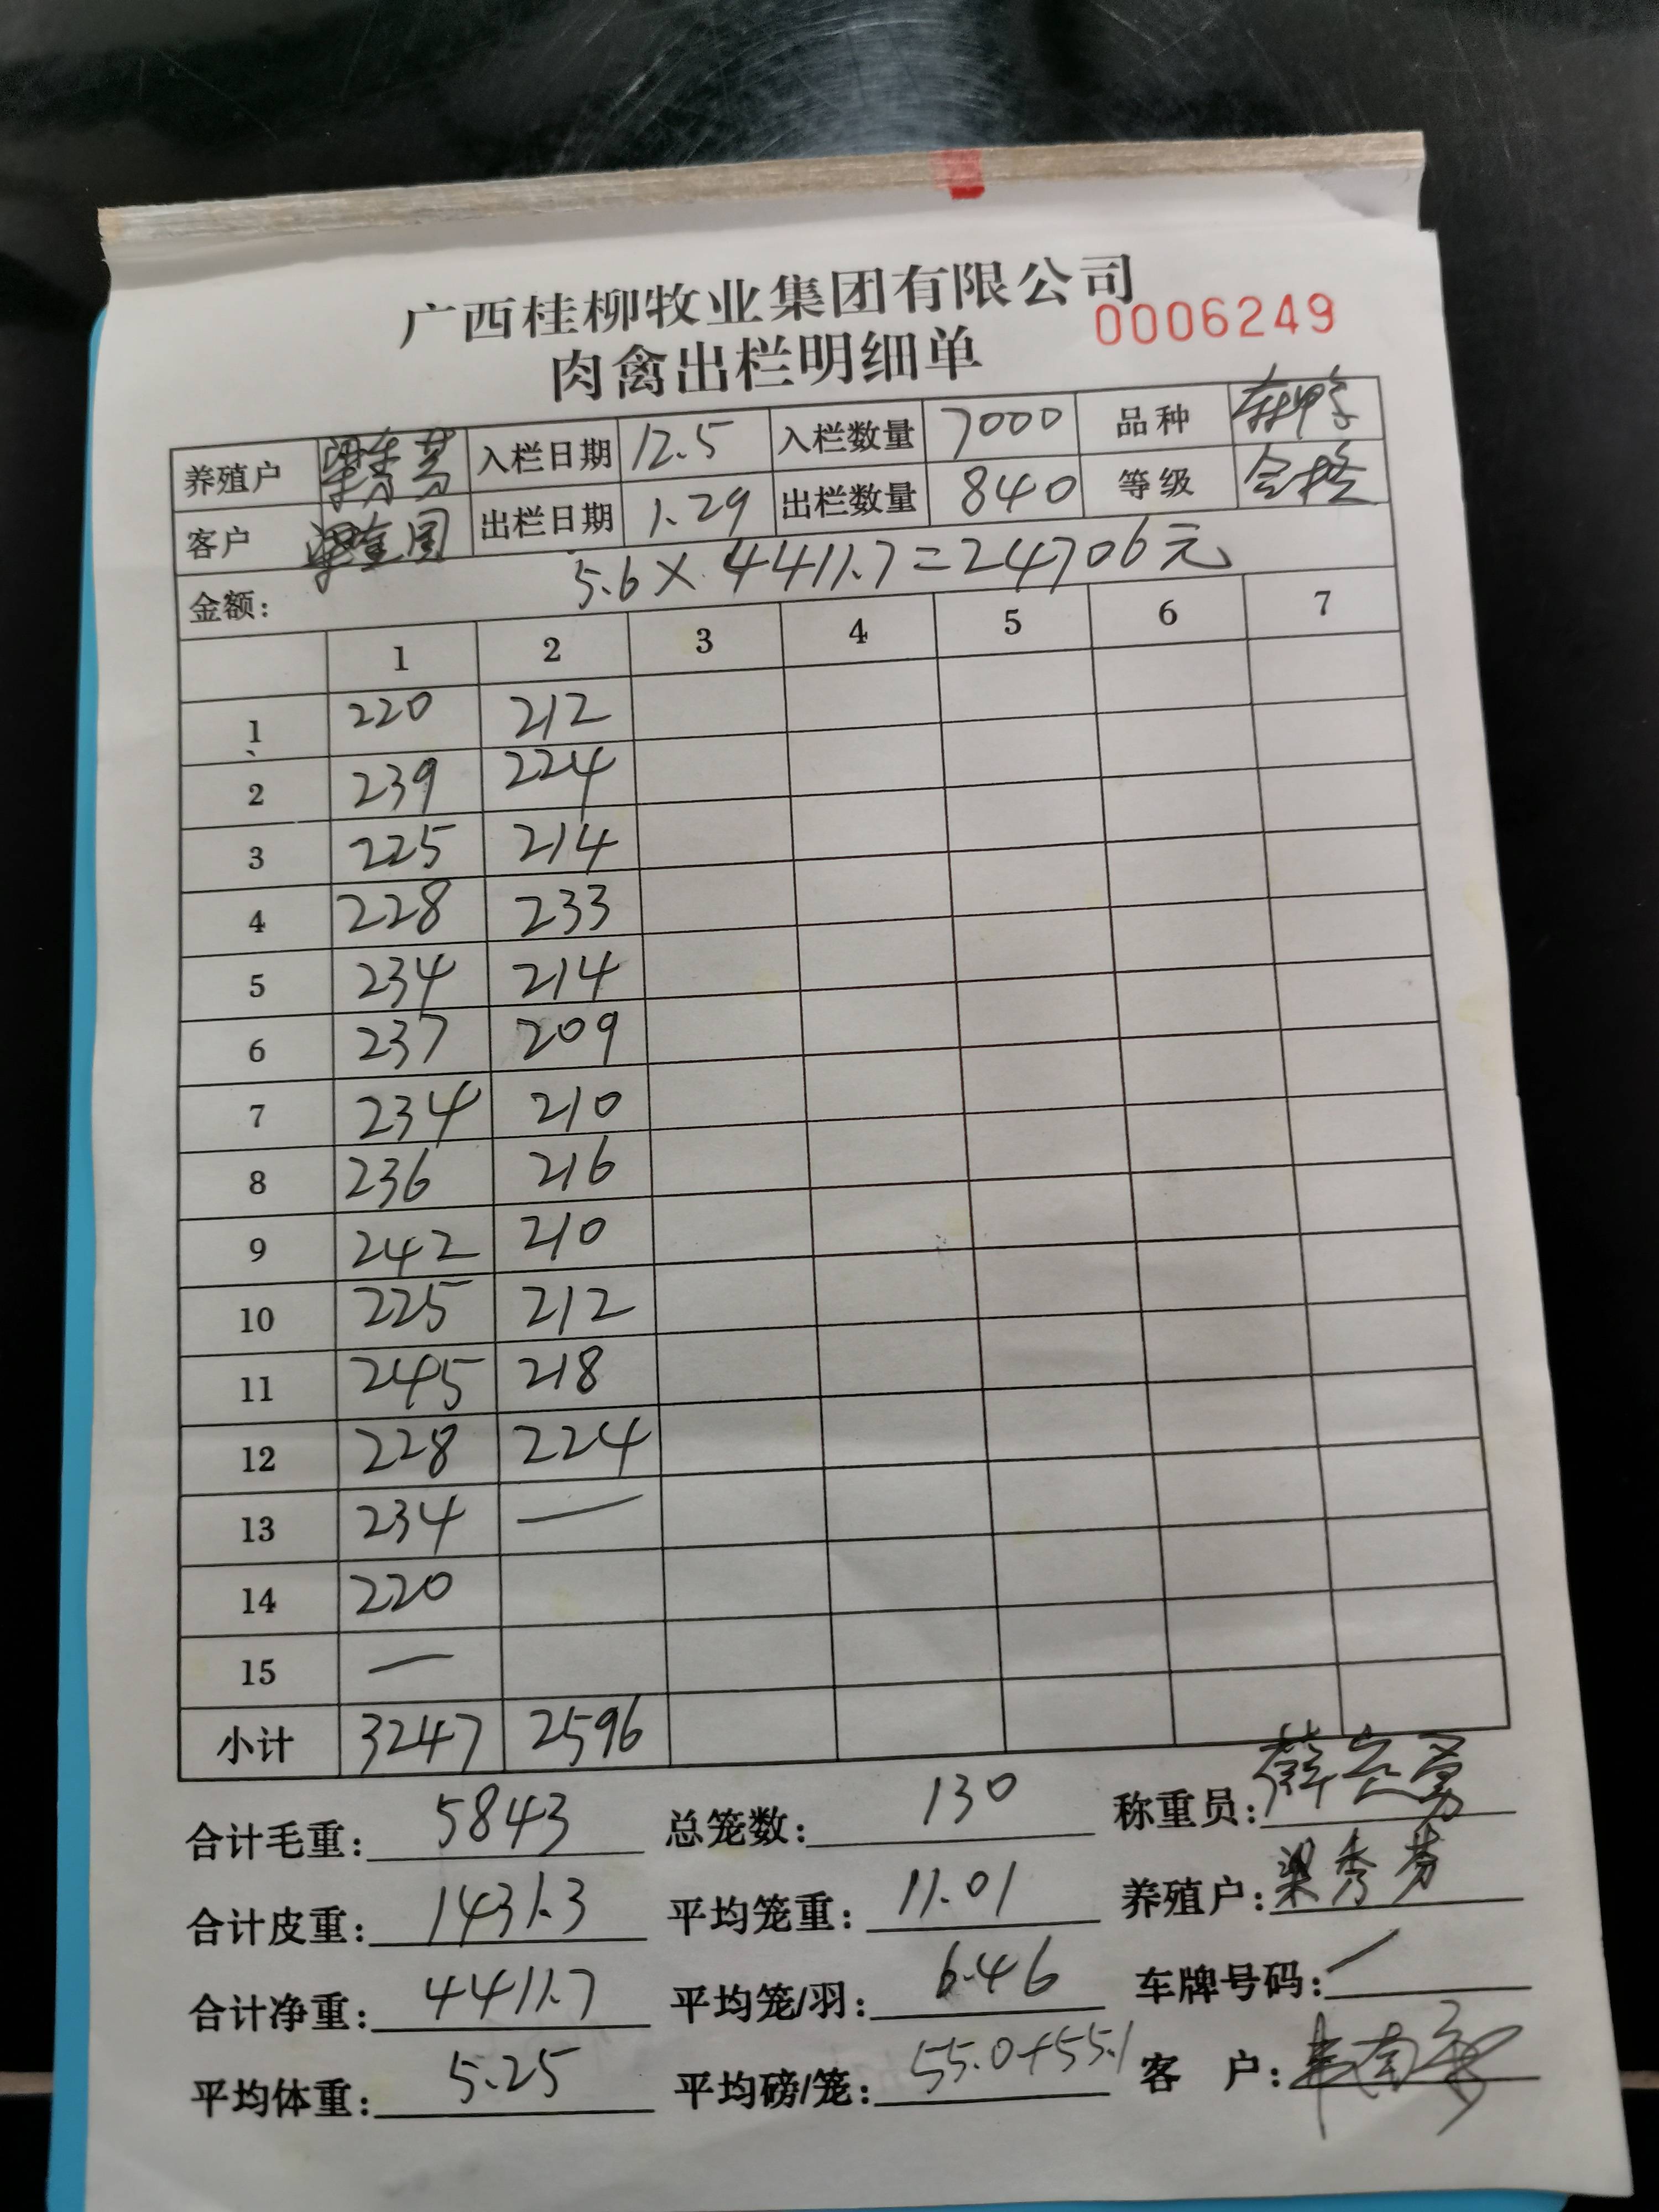 广西桂柳牧业集团有限公司
肉禽出栏明细单 0006249
养殖户 梁秀芳 入栏日期 12.5 入栏数量 7000 品种
客户 出栏日期 1.29 出栏数量 840 等级 合格
金额: 5.6×4411.7=24706元
1 2 3 4 5 6 7
1 220 212
2 239 224
3 225 214
4 228 233
5 234 214
6 237 209
7 234 210
8 236 216
9 242 210
10 225 212
11 245 218
12 228 224
13 234 —
14 220
15 —
小计 3247 2596
合计毛重: 5843 总笼数: 130 称重员:
合计皮重: 1431.3 平均笼重: 11.01 养殖户: 梁秀芳
合计净重: 4411.7 平均笼/羽: 6.46 车牌号码: /
平均体重: 5.25 平均磅/笼: 55.0+55.1 客 户: